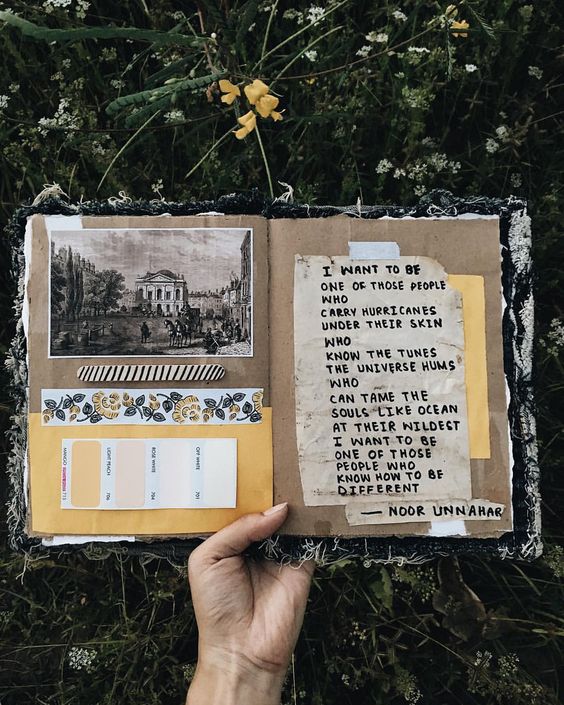 I WANT TO BE
ONE OF THOSE PEOPLE
WHO
CARRY HURRICANES
UNDER THEIR SKIN
WHO
KNOW THE TUNES
THE UNIVERSE HUMS
WHO
CAN TAME THE
SOULS LIKE OCEAN
AT THEIR WILDEST
I WANT TO BE
ONE OF THOSE
PEOPLE WHO
KNOW HOW TO BE
DIFFERENT
— NOOR UNNAHAR
MANGO
713
LIGHT PEACH
706
ROSE WHITE
704
OFF WHITE
701